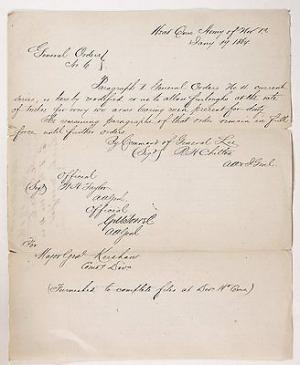 Head Qrs. Army of Nor. Va
Jany 19 1864
General Orders
No 6
Paragraph 1 General Orders No. current
series, is hereby modified so as to allow furloughs at the rate
of for every arms bearing men present for duty
The remaining paragraphs of that order remain in full
force until further orders
By Command of General Lee
(Sgd) R H Chilton
AA & I Genl
Official
(Sgd) W H Taylor
AAGenl
Official
AAGenl
For
Major Genl Kershaw
Comdg Divn
(Furnished to complete files at Divn Hd Qrs)